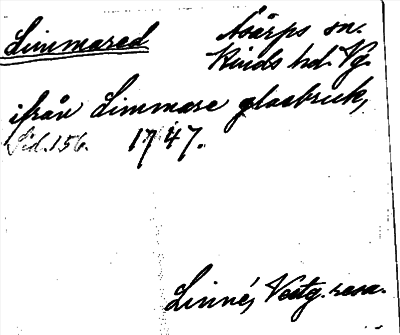 Limmared
Åsarps sn.
Kinds hd. Vg.
ifrån Limmare glasbruk,
Sid. 156. 1747.
Linné, Västg. resa.